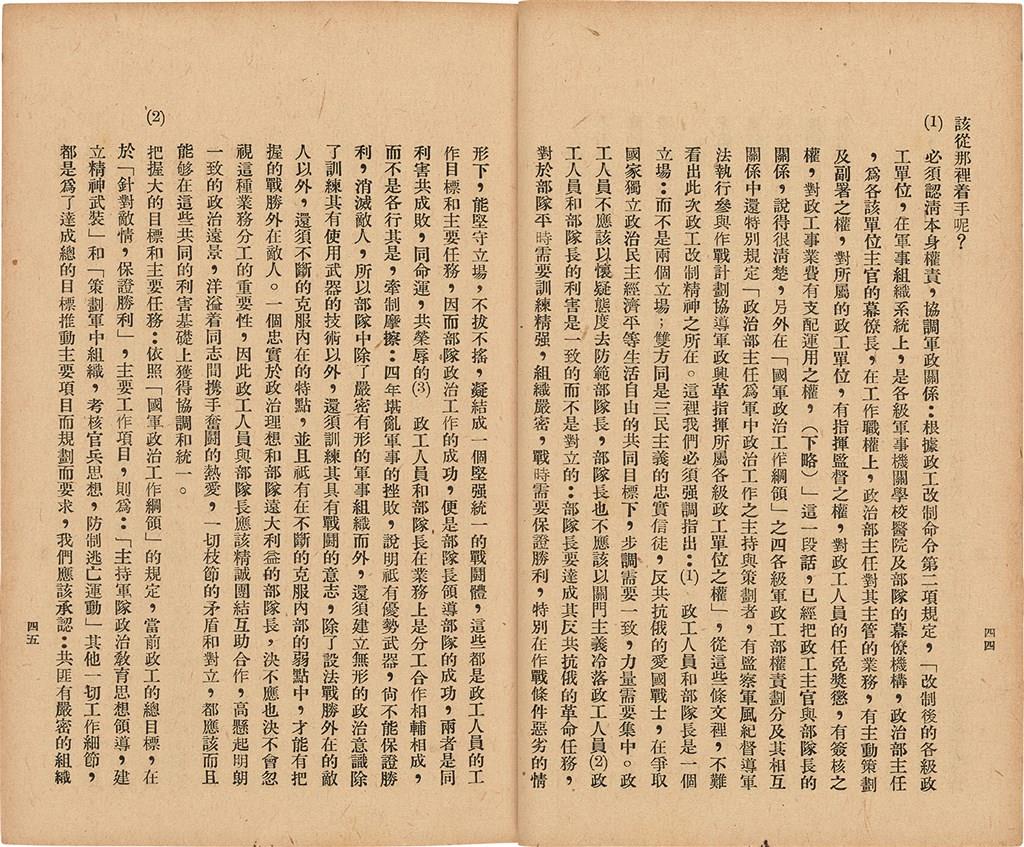 該從那裡着手呢？
(1) 必須認清本身權責，協調軍政關係：根據政工改制命令第二項規定，「改制後的各級政
工單位，在軍事組織系統上，是各級軍事機關學校醫院及部隊的幕僚機構，政治部主任
，爲各該單位主官的幕僚長，在工作職權上，政治部主任對其主管的業務，有主動策劃
及副署之權，對所屬的政工單位，有指揮監督之權，對政工人員的任免獎懲，有簽核之
權，對政工事業費有支配運用之權，（下略）」這一段話，已經把政工主官與部隊長的
關係，說得很清楚，另外在「國軍政治工作綱領」之四各級軍政工部權責劃分及其相互
關係中還特別規定「政治部主任爲軍中政治工作之主持與策劃者，有監察軍風紀督導軍
法執行參與作戰計劃協導軍政興革指揮所屬各級政工單位之權」，從這些條文裡，不難
看出此次政工改制精神之所在。這裡我們必須强調指出：(1) 政工人員和部隊長是一個
立場：而不是兩個立場；雙方同是三民主義的忠實信徒，反共抗俄的愛國戰士，在爭取
國家獨立政治民主經濟平等生活自由的共同目標下，步調需要一致，力量需要集中。政
工人員不應該以懷疑態度去防範部隊長，部隊長也不應該以關門主義冷落政工人員(2)政
工人員和部隊長的利害是一致的而不是對立的：部隊長要達成其反共抗俄的革命任務，
對於部隊平時需要訓練精强，組織嚴密，戰時需要保證勝利，特別在作戰條件惡劣的情
四四
形下，能堅守立場，不拔不搖，凝結成一個堅强統一的戰鬪體，這些都是政工人員的工
作目標和主要任務，因而部隊政治工作的成功，便是部隊長領導部隊的成功，兩者是同
利害共成敗，同命運，共榮辱的(3) 政工人員和部隊長在業務上是分工合作相輔相成，
而不是各行其是，牽制摩擦：四年堪亂軍事的挫敗，說明祇有優勢武器，尙不能保證勝
利，消滅敵人，所以部隊中除了嚴密有形的軍事組織而外，還須建立無形的政治意識除
了訓練其有使用武器的技術以外，還須訓練其具有戰鬪的意志，除了設法戰勝外在的敵
人以外，還須不斷的克服內在的特點，並且祇有在不斷的克服內部的弱點中，才能有把
握的戰勝外在敵人。一個忠實於政治理想和部隊遠大利益的部隊長，決不應也決不會忽
視這種業務分工的重要性，因此政工人員與部隊長應該精誠團結互助合作，高懸起明朗
一致的政治遠景，洋溢着同志間携手奮鬪的熱愛，一切枝節的矛盾和對立，都應該而且
能够在這些共同的利害基礎上獲得協調和統一。
(2) 把握大的目標和主要任務：依照「國軍政治工作綱領」的規定，當前政工的總目標，在
於「針對敵情，保證勝利」，主要工作項目，則爲：「主持軍隊政治敎育思想領導，建
立精神武裝」和「策劃軍中組織，考核官兵思想，防制逃亡運動」其他一切工作細節，
都是爲了達成總的目標推動主要項目而規劃而要求，我們應該承認：共匪有嚴密的組織
四五